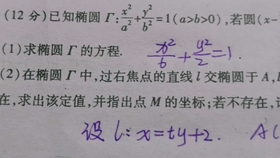 (12 分)已知椭圆 Γ: x²/a² + y²/b² = 1(a>b>0),若圆(x-
(1)求椭圆 Γ 的方程. x²/6 + y²/2 = 1.
(2)在椭圆 Γ 中,过右焦点的直线 l 交椭圆于 A,
在,求出该定值,并指出点 M 的坐标;若不存在,
设 l: x=ty+2. A(